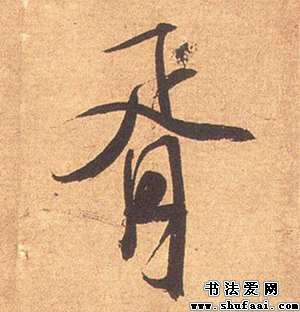 胥
书法爱网
www.shufaai.com